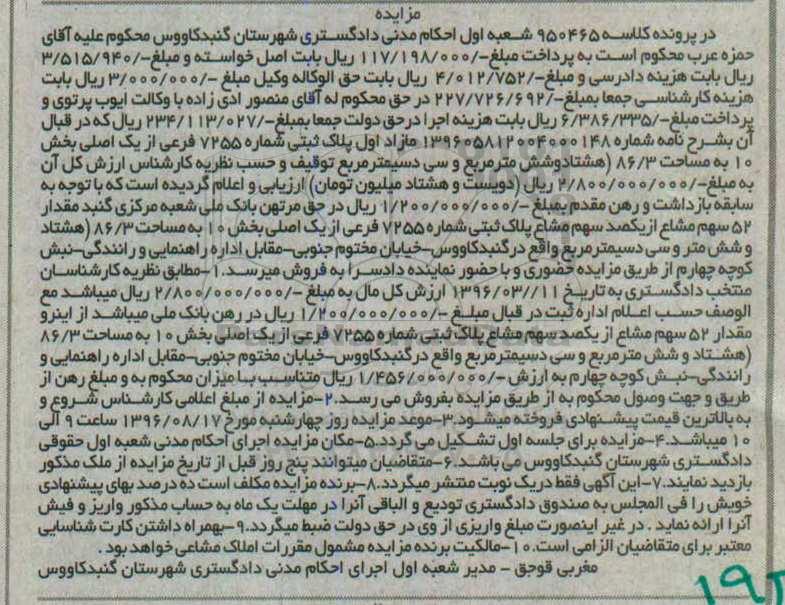 مزایده
در پرونده کلاسه ۹۵۰۴۶۵ شعبه اول احکام مدنی دادگستری شهرستان گنبدکاووس محکوم علیه آقای
حمزه عرب محکوم است به پرداخت مبلغ-/۱۱۷/۱۹۸/۰۰۰ ریال بابت اصل خواسته و مبلغ-/۳/۵۱۵/۹۴۰
ریال بابت هزینه دادرسی و مبلغ-/۴/۰۱۲/۷۵۲ ریال بابت حق الوکاله وکیل مبلغ -/۳/۰۰۰/۰۰۰ ریال بابت
هزینه کارشناسی جمعا بمبلغ-/۲۲۷/۷۲۶/۶۹۲ در حق محکوم له آقای منصور ادی زاده با وکالت ایوب پرتوی و
پرداخت مبلغ-/۶/۳۸۶/۳۳۵ ریال بابت هزینه اجرا در حق دولت جمعا بمبلغ-/۲۳۴/۱۱۳/۰۲۷ ریال که در قبال
آن بشرح نامه شماره ۱۳۹۶۰۵۸۱۲۰۰۴۰۰۰۱۴۸ مازاد اول پلاک ثبتی شماره ۷۲۵۵ فرعی از یک اصلی بخش
۱۰ به مساحت ۸۶/۳ (هشتادوشش مترمربع و سی دسیمترمربع توقیف و حسب نظریه کارشناس ارزش کل آن
به مبلغ-/۲/۸۰۰/۰۰۰/۰۰۰ ریال (دویست و هشتاد میلیون تومان) ارزیابی و اعلام گردیده است که با توجه به
سابقه بازداشت و رهن مقدم بمبلغ -/۱/۲۰۰/۰۰۰/۰۰۰ ریال در حق مرتهن بانک ملی شعبه مرکزی گنبد مقدار
۵۲ سهم مشاع از یکصد سهم مشاع پلاک ثبتی شماره ۷۲۵۵ فرعی از یک اصلی بخش ۱۰ به مساحت ۸۶/۳ (هشتاد
و شش متر و سی دسیمتر مربع واقع در گنبدکاووس-خیابان مختوم جنوبی-مقابل اداره راهنمایی و رانندگی-نبش
کوچه چهارم از طریق مزایده حضوری و با حضور نماینده دادسرا به فروش میرسد.۱-مطابق نظریه کارشناسان
منتخب دادگستری به تاریخ ۱۳۹۶/۰۳//۱۱ ارزش کل مال به مبلغ -/۲/۸۰۰/۰۰۰/۰۰۰ ریال میباشد مع
الوصف حسب اعلام اداره ثبت در قبال مبلغ -/۱/۲۰۰/۰۰۰/۰۰۰ ریال در رهن بانک ملی میباشد از اینرو
مقدار ۵۲ سهم مشاع از یکصد سهم مشاع پلاک ثبتی شماره ۷۲۵۵ فرعی از یک اصلی بخش ۱۰ به مساحت ۸۶/۳
(هشتاد و شش مترمربع و سی دسیمترمربع واقع در گنبدکاووس-خیابان مختوم جنوبی-مقابل اداره راهنمایی و
رانندگی-نبش کوچه چهارم به ارزش -/۱/۴۵۶/۰۰۰/۰۰۰ ریال متناسب با میزان محکوم به و مبلغ رهن از
طریق و جهت وصول محکوم به از طریق مزایده بفروش می رسد.۲-مزایده از مبلغ اعلامی کارشناس شروع و
به بالاترین قیمت پیشنهادی فروخته میشود.۳-موعد مزایده روز چهارشنبه مورخ ۱۳۹۶/۰۸/۱۷ ساعت ۹ الی
۱۰ میباشد.۴-مزایده برای جلسه اول تشکیل می گردد.۵-مکان مزایده اجرای احکام مدنی شعبه اول حقوقی
دادگستری شهرستان گنبدکاووس می باشد.۶-متقاضیان میتوانند پنج روز قبل از تاریخ مزایده از ملک مذکور
بازدید نمایند.۷-این آگهی فقط در یک نوبت منتشر میگردد.۸-برنده مزایده مکلف است ده درصد بهای پیشنهادی
خویش را فی المجلس به صندوق دادگستری تودیع و الباقی آنرا در مهلت یک ماه به حساب مذکور واریز و فیش
آنرا ارائه نماید . در غیر اینصورت مبلغ واریزی از وی در حق دولت ضبط میگردد.۹-بهمراه داشتن کارت شناسایی
معتبر برای متقاضیان الزامی است.۱۰-مالکیت برنده مزایده مشمول مقررات املاک مشاعی خواهد بود .
مغربی قوجق - مدیر شعبه اول اجرای احکام مدنی دادگستری شهرستان گنبدکاووس